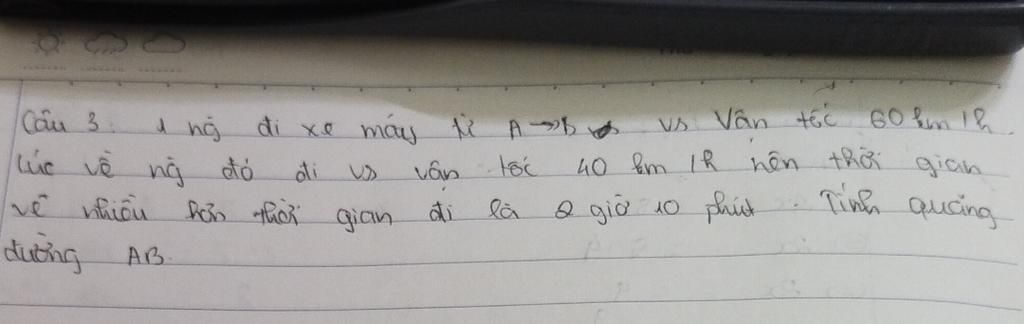 Câu 3. 1 ng̀ đi xe máy từ A→B vs Vận tốc 60 km/h.
lúc về ng̀ đó đi vs vận tốc 40 km/h nên thời gian
về nhiều hơn thời gian đi là 2 giờ 10 phút. Tính quãng
đường AB.